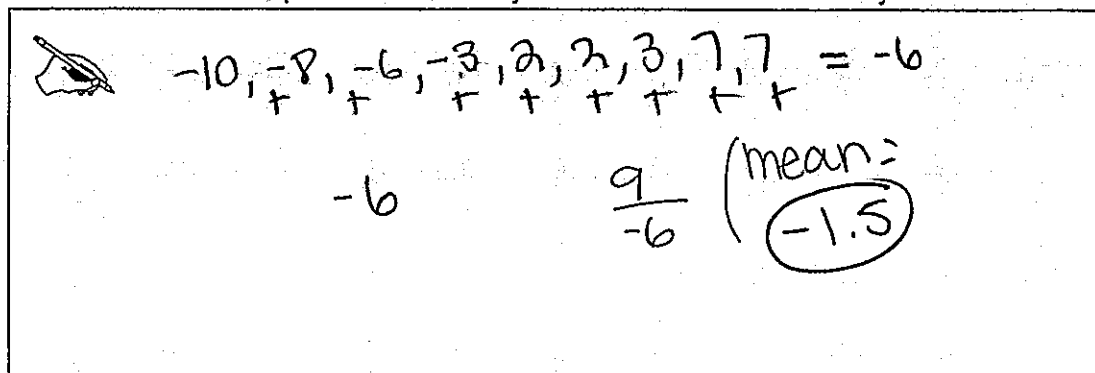 -10, -8, -6, -3, 2, 2, 3, 7, 7 = -6
+ + + + + + + +
-6 9/-6 (mean =
-1.5